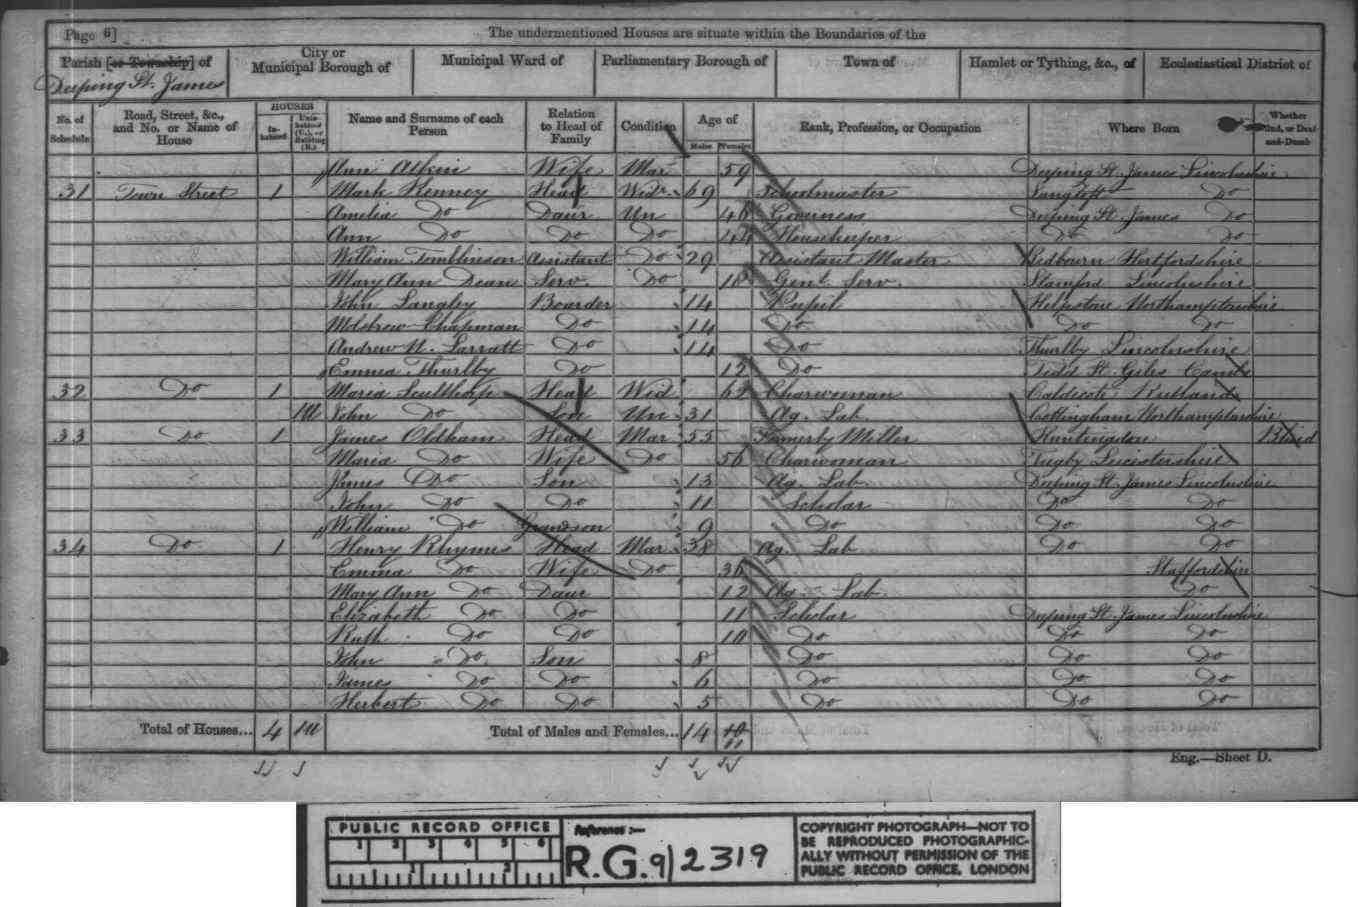 Page 6]
The undermentioned Houses are situate within the Boundaries of the
Parish [or Township] of
City or Municipal Borough of
Municipal Ward of
Parliamentary Borough of
Town of
Hamlet or Tything, &c., of
Ecclesiastical District of
Deeping St. James
No. of Schedule
Road, Street, &c., and No. or Name of House
HOUSES
Inhabited
Uninhabited (U.), or Building (B.)
Name and Surname of each Person
Relation to Head of Family
Condition
Age of
Males
Females
Rank, Profession, or Occupation
Where Born
Whether Blind, or Deaf-and-Dumb
Ann Atkin Wife Mar 59 Deeping St. James Lincolnshire
31 Town Street 1 Mark Henney Head Widr 69 Schoolmaster Langtoft Do
Amelia Do Daur Un 46 Governess Deeping St. James Do
Ann Do Do Do 44 Housekeeper Do Do
William Tomblinson Assistant Do 29 Assistant Master Redbourn Hertfordshire
Mary Ann Dean Serv. Do 18 Genl. Serv. Stamford Lincolnshire
John Langley Boarder 14 Pupil Helpstone Northamptonshire
Chapman Do 14 Do Do Do
Andrew N. Larratt Do 14 Do Thurlby Lincolnshire
Emma Thurlby Do 12 Do Tidd St. Giles Cambs
32 Do 1 Maria Sculthorp Head Wid 62 Charwoman Caldicote Rutland
John Do Son Un 31 Ag. Lab. Cottingham Northamptonshire
33 Do 1 James Oldham Head Mar 55 Formerly Miller Huntingdon Blind
Maria Do Wife Do 56 Charwoman Leicestershire
James Do Son 13 Ag. Lab. Deeping St. James Lincolnshire
John Do Do 11 Scholar Do Do
William Do Grandson 9 Do Do Do
34 Do 1 Henry Rhymes Head Mar 38 Ag. Lab Do Do
Emma Do Wife Do 36 Staffordshire
Mary Ann Do Daur 12 Ag. Lab. Do
Elizabeth Do Do 11 Scholar Deeping St. James Lincolnshire
Ruth Do Do 10 Do Do Do
John Do Son 8 Do Do Do
James Do Do 6 Do Do Do
Herbert Do Do 5 Do Do Do
Total of Houses... 4
Total of Males and Females... 14 10 11
Eng.—Sheet D.
PUBLIC RECORD OFFICE
1 2 3 4 5 6
1 2
Reference:—
R.G. 9/2319
COPYRIGHT PHOTOGRAPH—NOT TO
BE REPRODUCED PHOTOGRAPHIC-
ALLY WITHOUT PERMISSION OF THE
PUBLIC RECORD OFFICE, LONDON